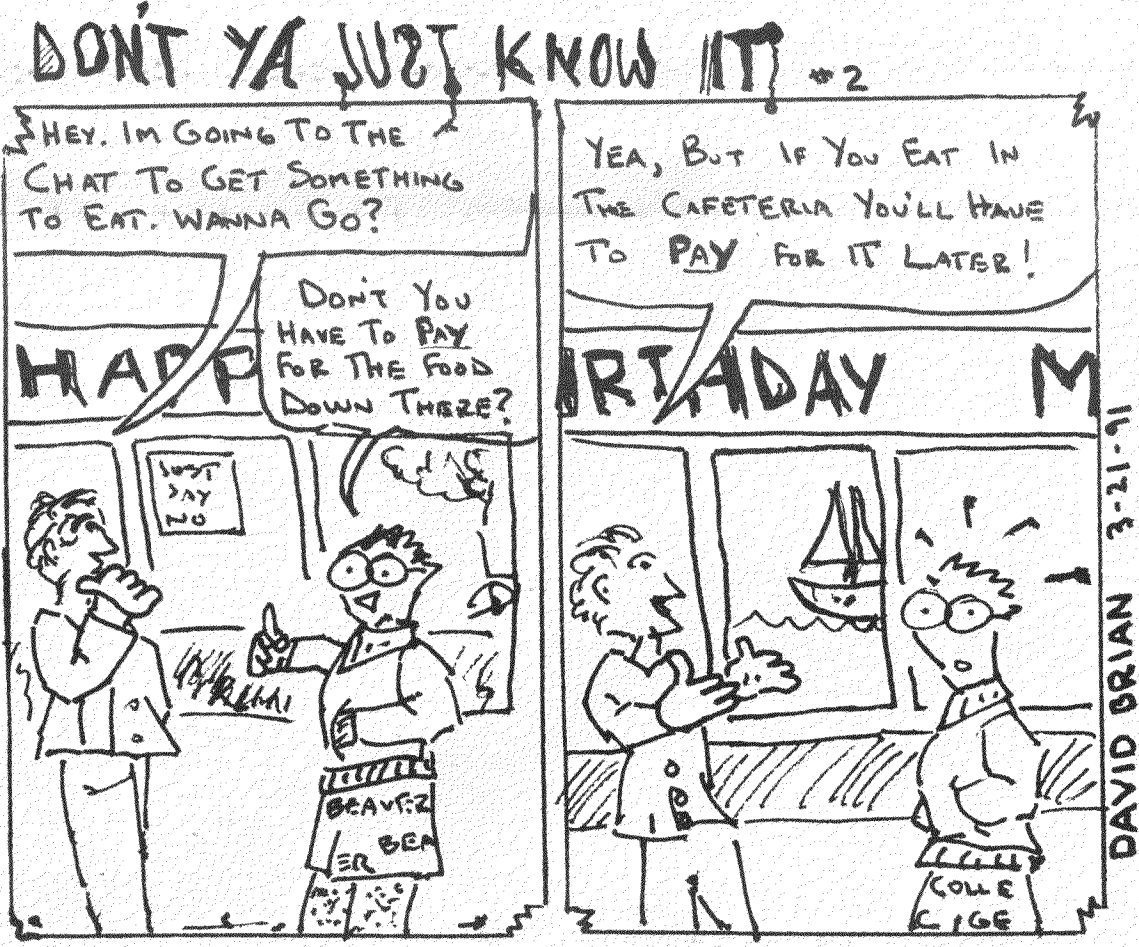 DON'T YA JUST KNOW IT! #2
HEY. IM GOING TO THE
CHAT TO GET SOMETHING
TO EAT. WANNA GO?
DON'T YOU
HAVE TO PAY
FOR THE FOOD
DOWN THERE?
HAPP
JUST
SAY
NO
BEAVER
BEA
ER
YEA, BUT IF YOU EAT IN
THE CAFETERIA YOU'LL HAVE
TO PAY FOR IT LATER!
IRTHDAY M
COLLE
GE
DAVID BRIAN 3-21-91